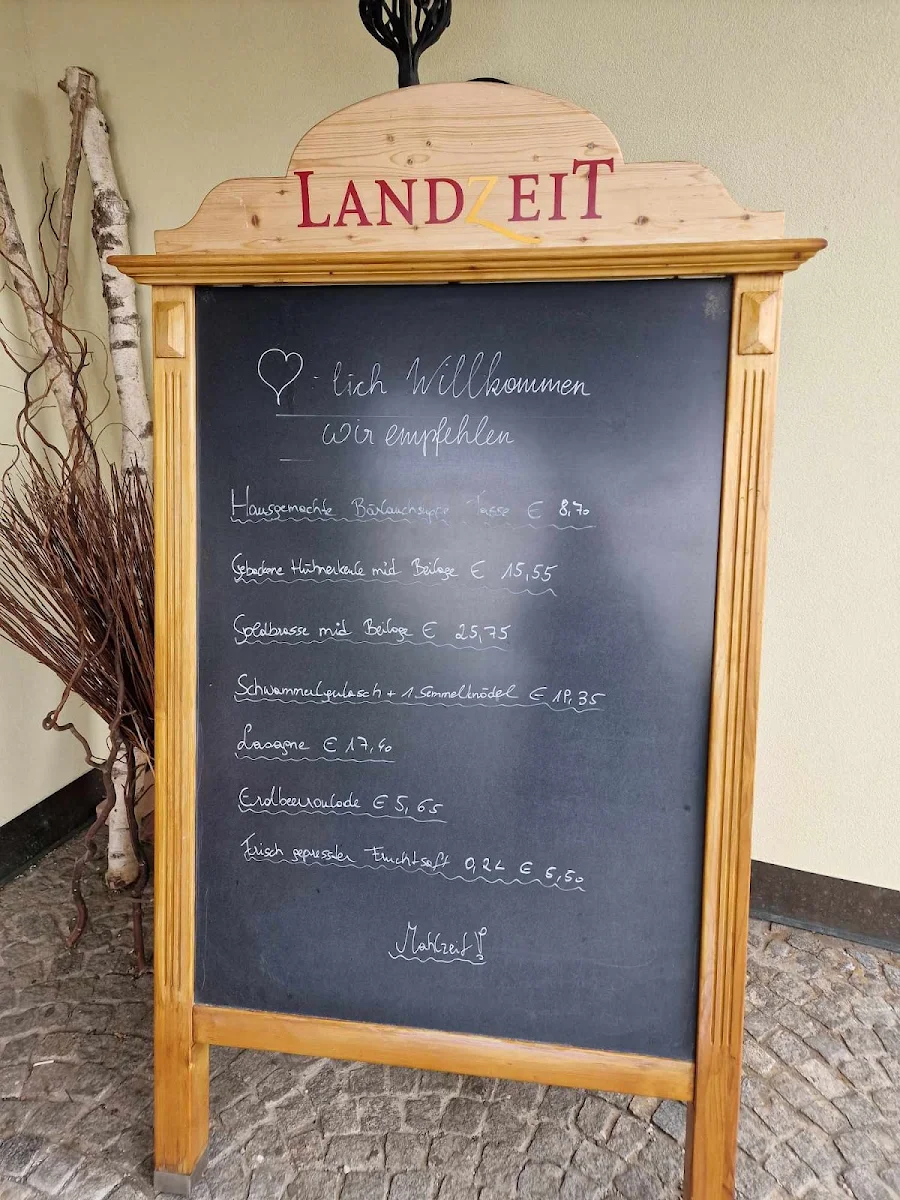 LANDZEIT
♡-lich Willkommen
wir empfehlen
Hausgemachte Bärlauchsuppe Tasse € 8,70
Gebackene Hühnerkeule mid Beilage € 15,55
Goldbrasse mid Beilage € 25,75
Schwammerlgulasch + 1 Semmelknödel € 18,35
Lasagne € 17,40
Erdbeerroulade € 5,65
Frisch gepresster Fruchtsaft 0,2L € 6,50
Mahlzeit!